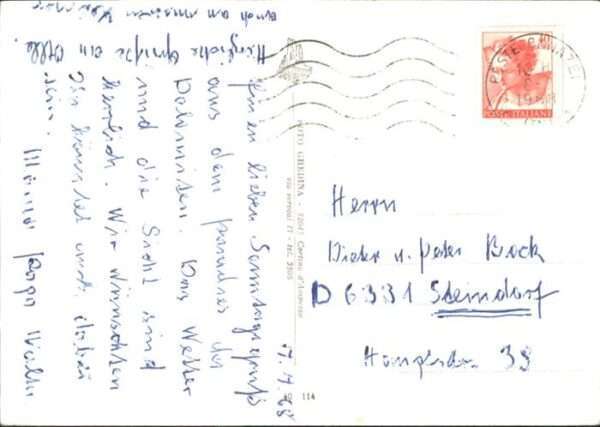 7.4.68
Einen lieben Sonntagsgruß
aus dem Paradies der
Dolomiten. Das Wetter
und die Sicht sind
herrlich. Wir wünschten
Ihr könntet auch dabei
sein.
Herzliche Grüße an Alle
auch an
Herrn
Dieter u. Peter Bock
D 6331 Steindorf
38
FOTO GHEDINA - 32043 Cortina d'Ampezzo
114
POSTE ITALIANE